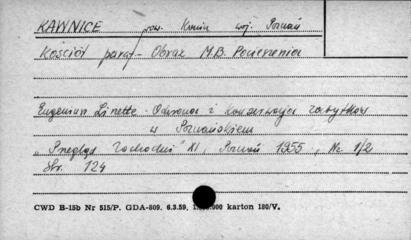 KAWNICE pow. Konin woj. Poznań
Kościół paraf - Obraz M.B. Pocieszenia
Eugeniusz Linette - Odnowa i konserwacja zabytków
w Poznańskiem
„Przegląd Zachodni" XI, Poznań 1955, Nr 1/2
Str. 124
CWD B-15b Nr 515/P. GDA-809. 6.3.59, 1.000.000 karton 180/V.